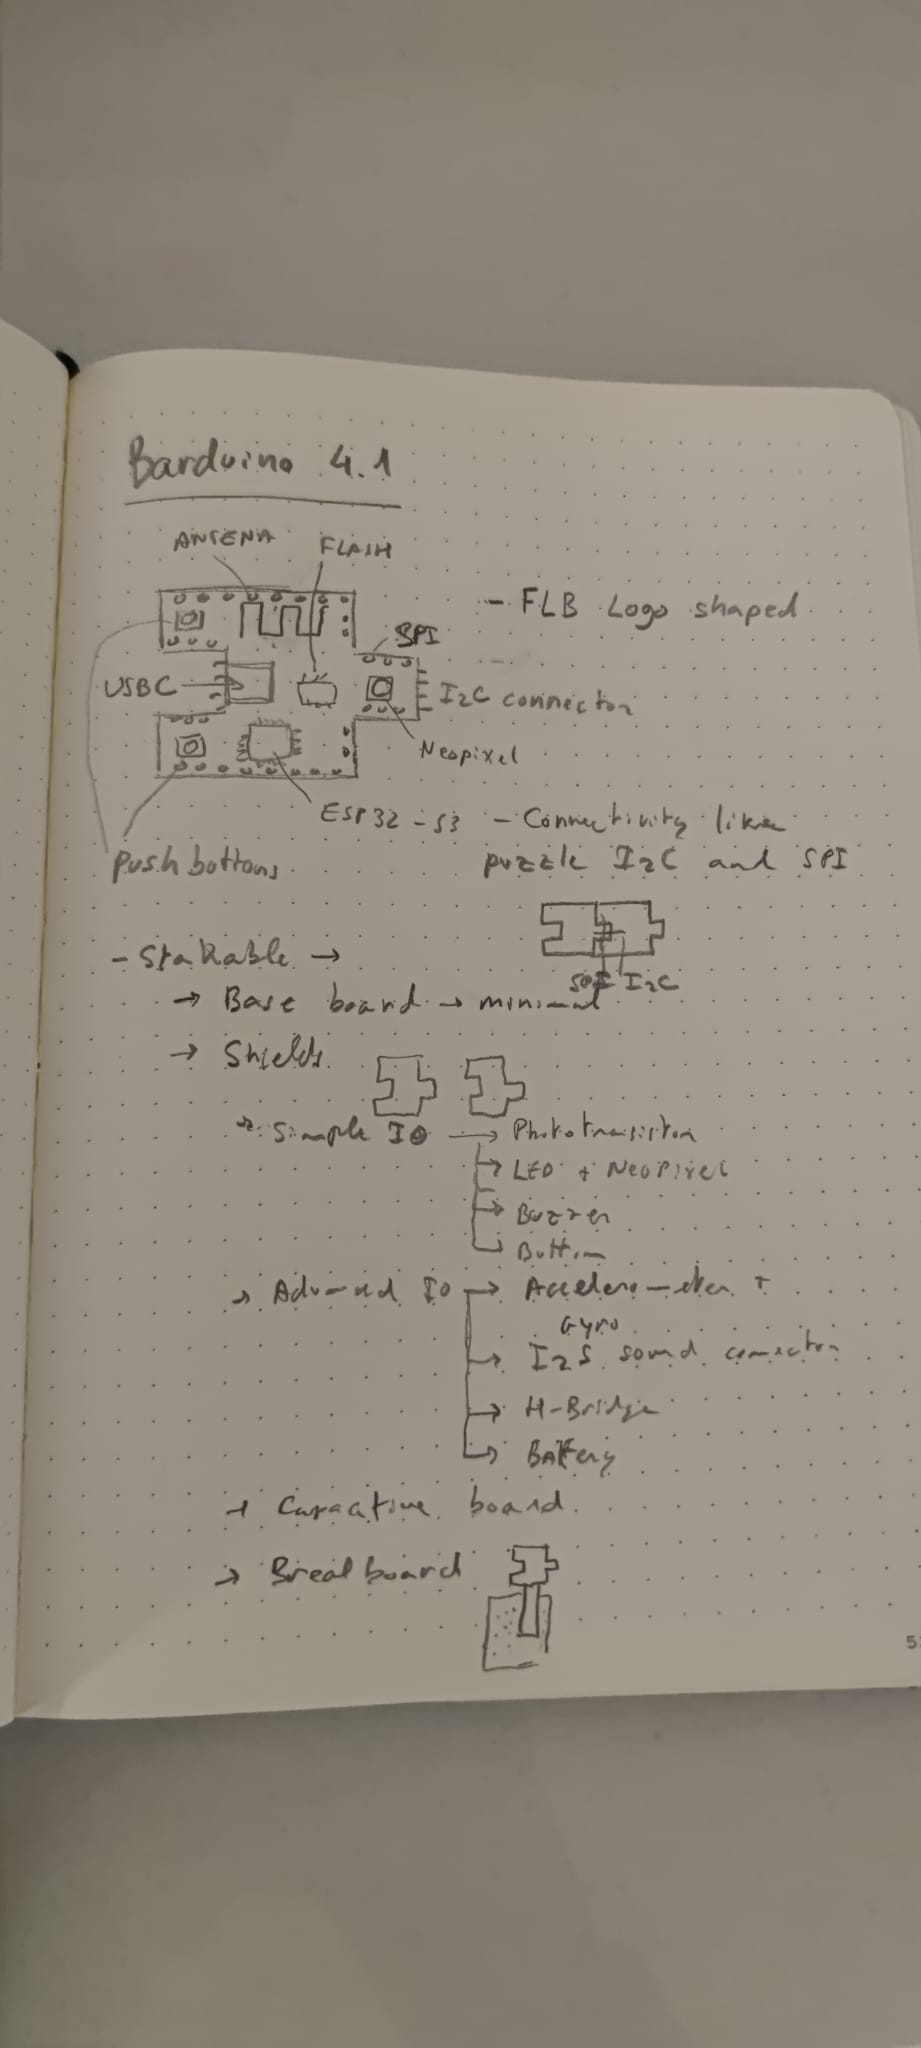 Barduino 4.1
ANTENA
FLASH
- FLB Logo shaped
SPI
USBC
I2C connector
Neopixel
ESP32-S3
- Connectivity like
puzzle I2C and SPI
push bottons
SPI I2C
- Stakable →
→ Base board → minimal
→ Shields
→ Simple IO → Phototransistor
→ LED + NeoPixel
→ Buzzer
→ Button
→ Advanced IO → Accelerometer +
Gyro
→ I2S sound connector
→ H-Bridge
→ Battery
→ Capacitive board
→ Breadboard